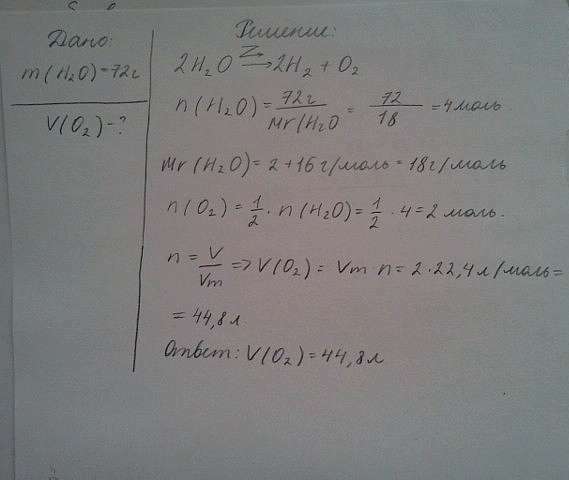 Дано:
m(H₂O)=72г
V(O₂)-?
Решение:
2H₂O → 2H₂ + O₂
n(H₂O) = 72г / Mr(H₂O = 72 / 18 = 4 моль
Mr(H₂O) = 2 + 16 г/моль = 18г/моль
n(O₂) = 1/2 · n(H₂O) = 1/2 · 4 = 2 моль.
n = V/Vm => V(O₂) = Vm · n = 2 · 22,4 л/моль =
= 44,8 л
Ответ: V(O₂) = 44,8л